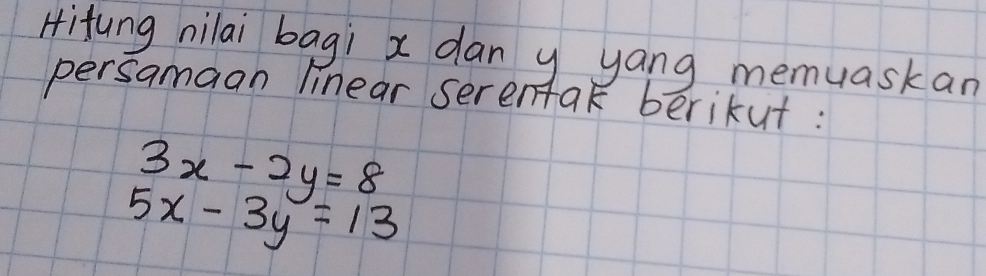 Hitung nilai bagi x dan y yang memuaskan
persamaan linear serentak berikut :
3x - 2y = 8
5x - 3y = 13